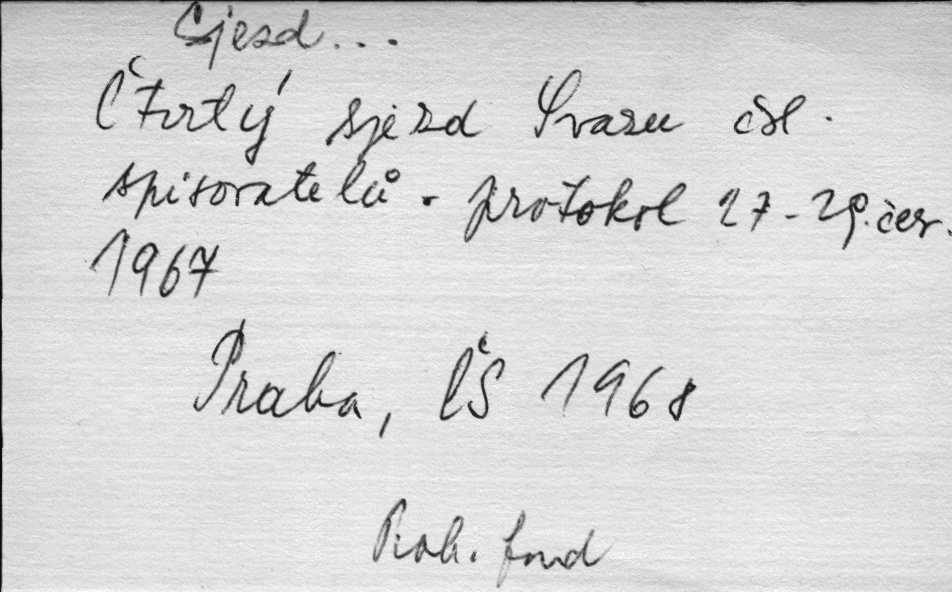 Sjezd...
Čtvrtý sjezd Svazu čsl.
spisovatelů. protokol 27-29.čer.
1967
Praha, ČS 1968
fond